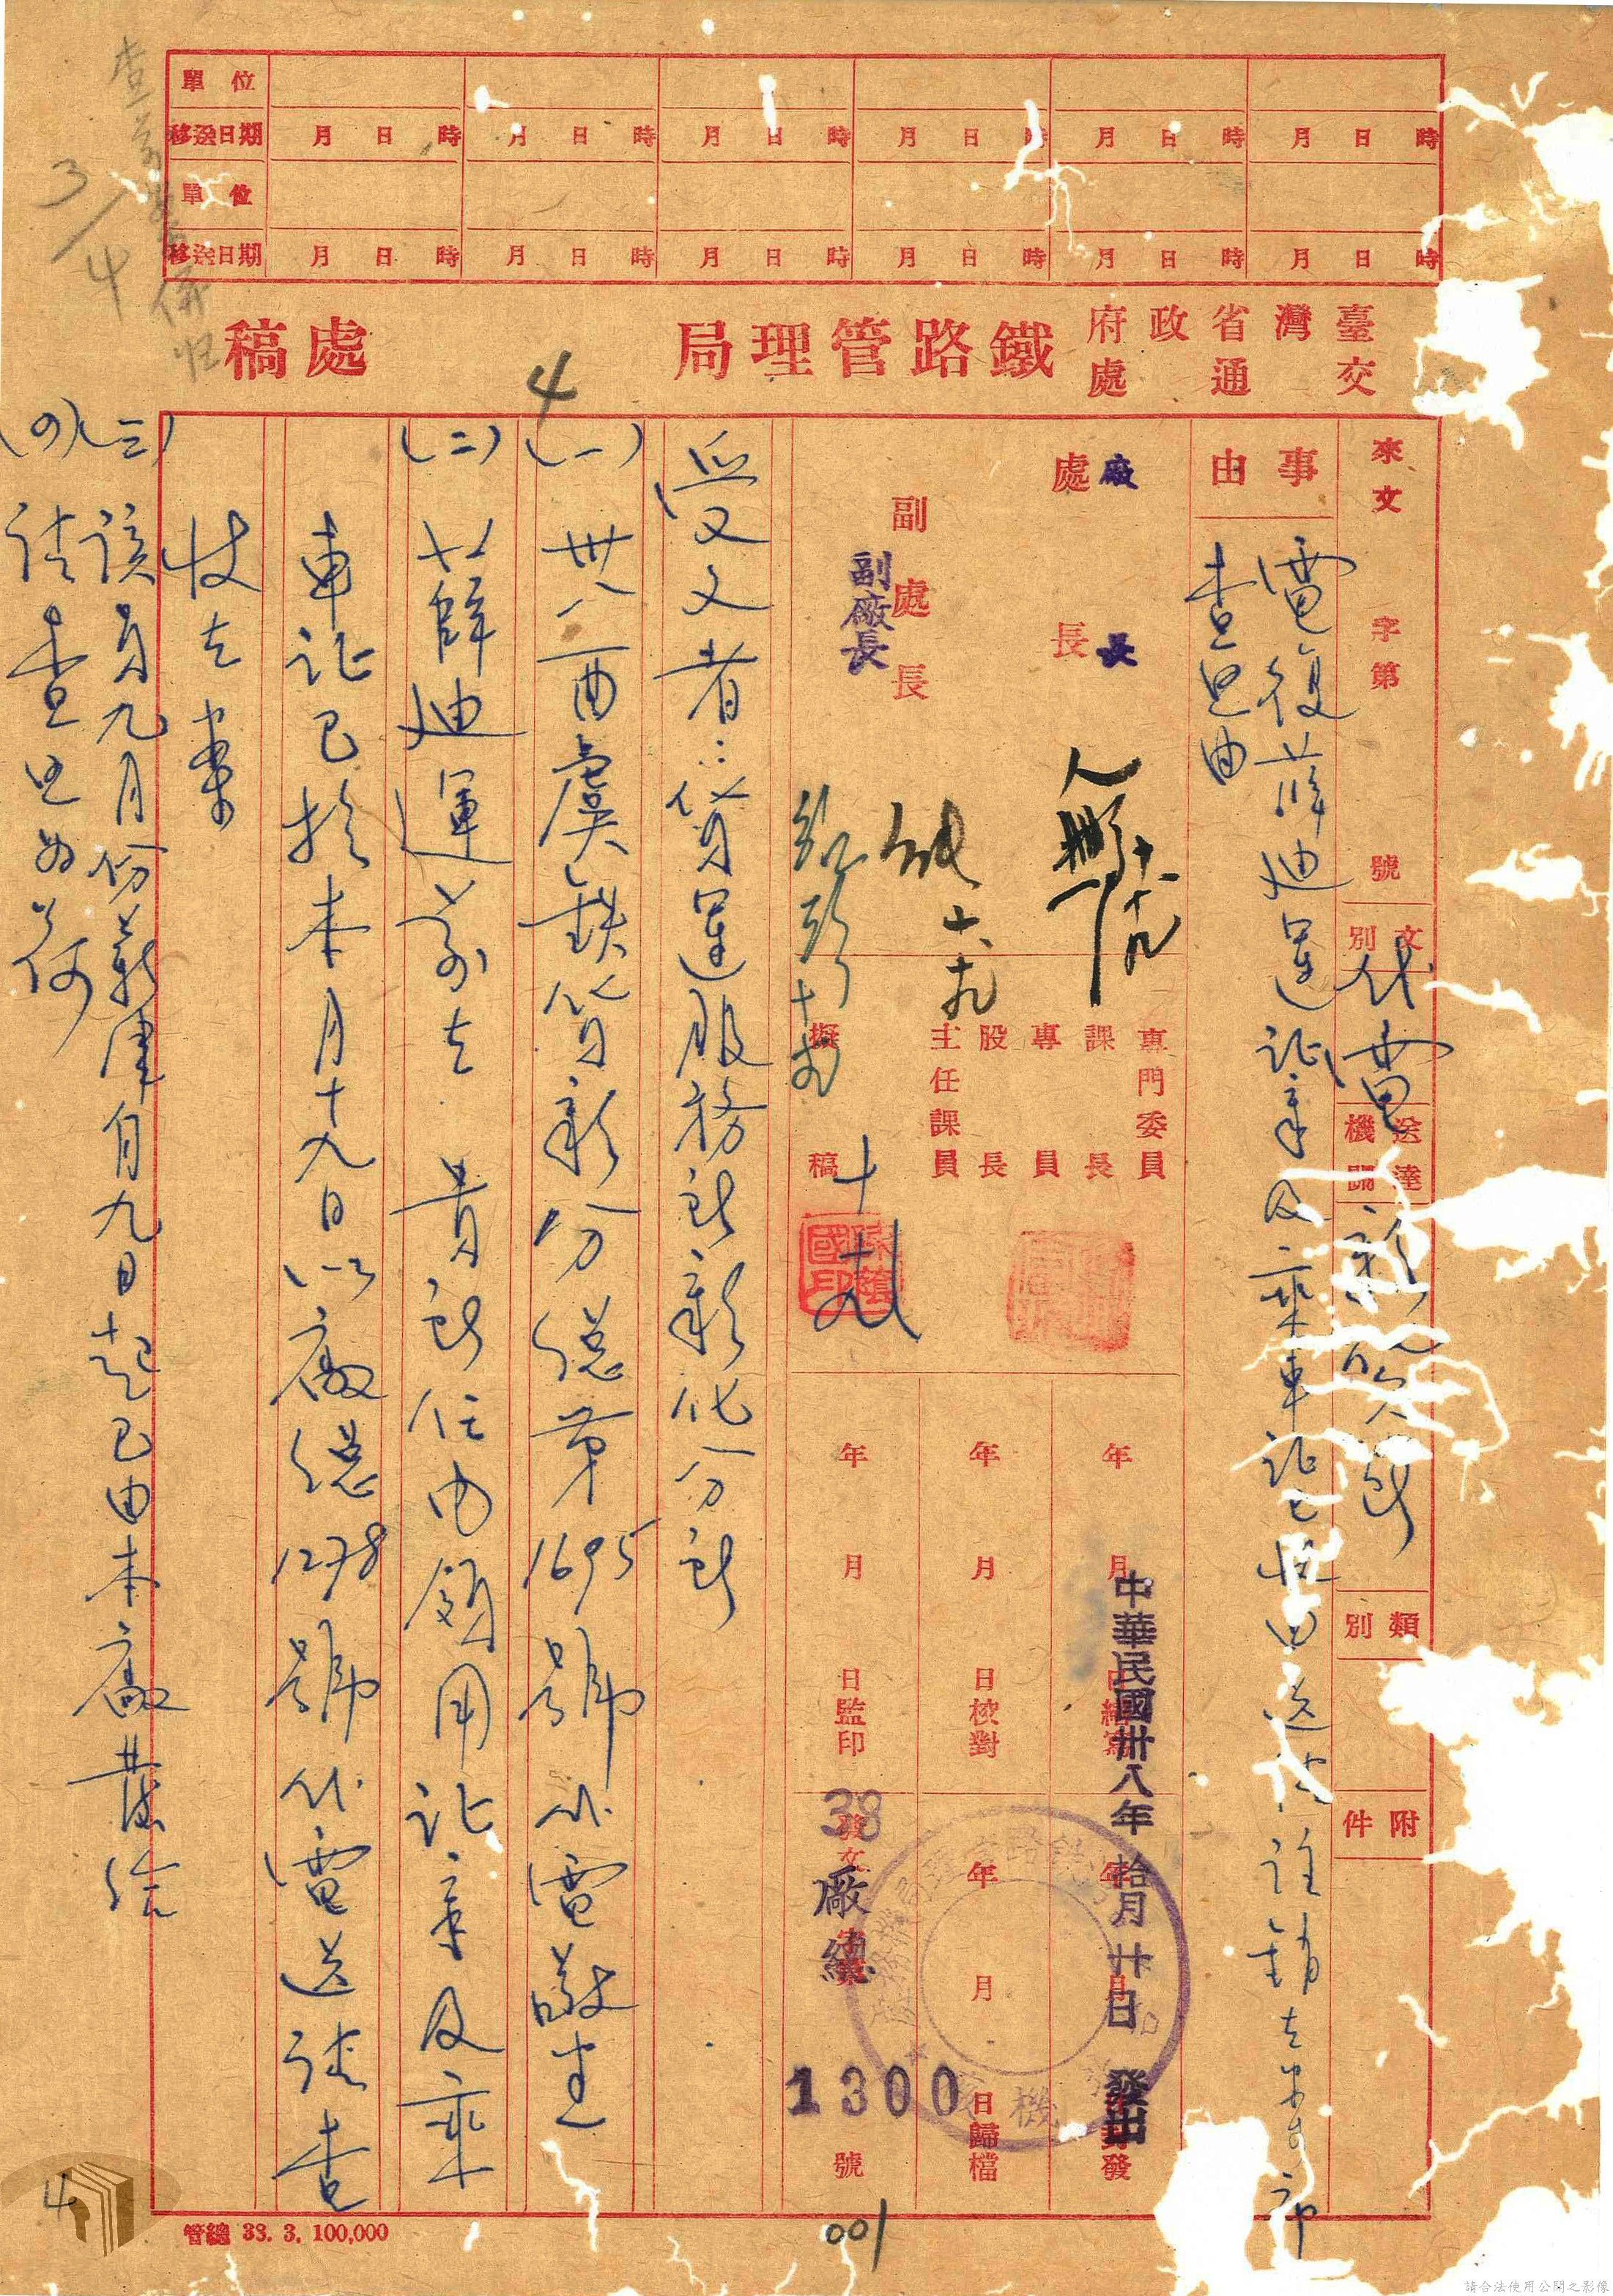 單位
移送日期 月 日 時 月 日 時 月 日 時 月 日 時 月 日 時 月 日 時
單位
移送日期 月 日 時 月 日 時 月 日 時 月 日 時 月 日 時 月 日 時
3/4
臺灣省政府交通處鐵路管理局 處稿
4
來文 字第 號
文別 代電
送達機關
類別
附件
事由
電復薛迪運証章及乘車証已
查照由
處長
廠長
副處長
副廠長
專門委員
課長
專員
股長
主任課員
擬稿
年 月 日繕寫
年 月 日校對
年 月 日監印
中華民國卅八年拾月廿日發出
年 月 日封發
年 月 日歸檔
38
發文 廠總 字第 1300 號
受文者：貨運服務所彰化分所
(一)卅八酉虞鉄貨彰分總第1695號代電敬悉
(二)薛迪運前在貴所任內領用証章及乘
車証已於本月十九日以廠總1278號代電送請查
收在案
(三)該員九月份薪津自九日起已由本廠發給
(四)請查照為荷
管總 38. 3. 100,000
001
4
請合法使用公開之影像